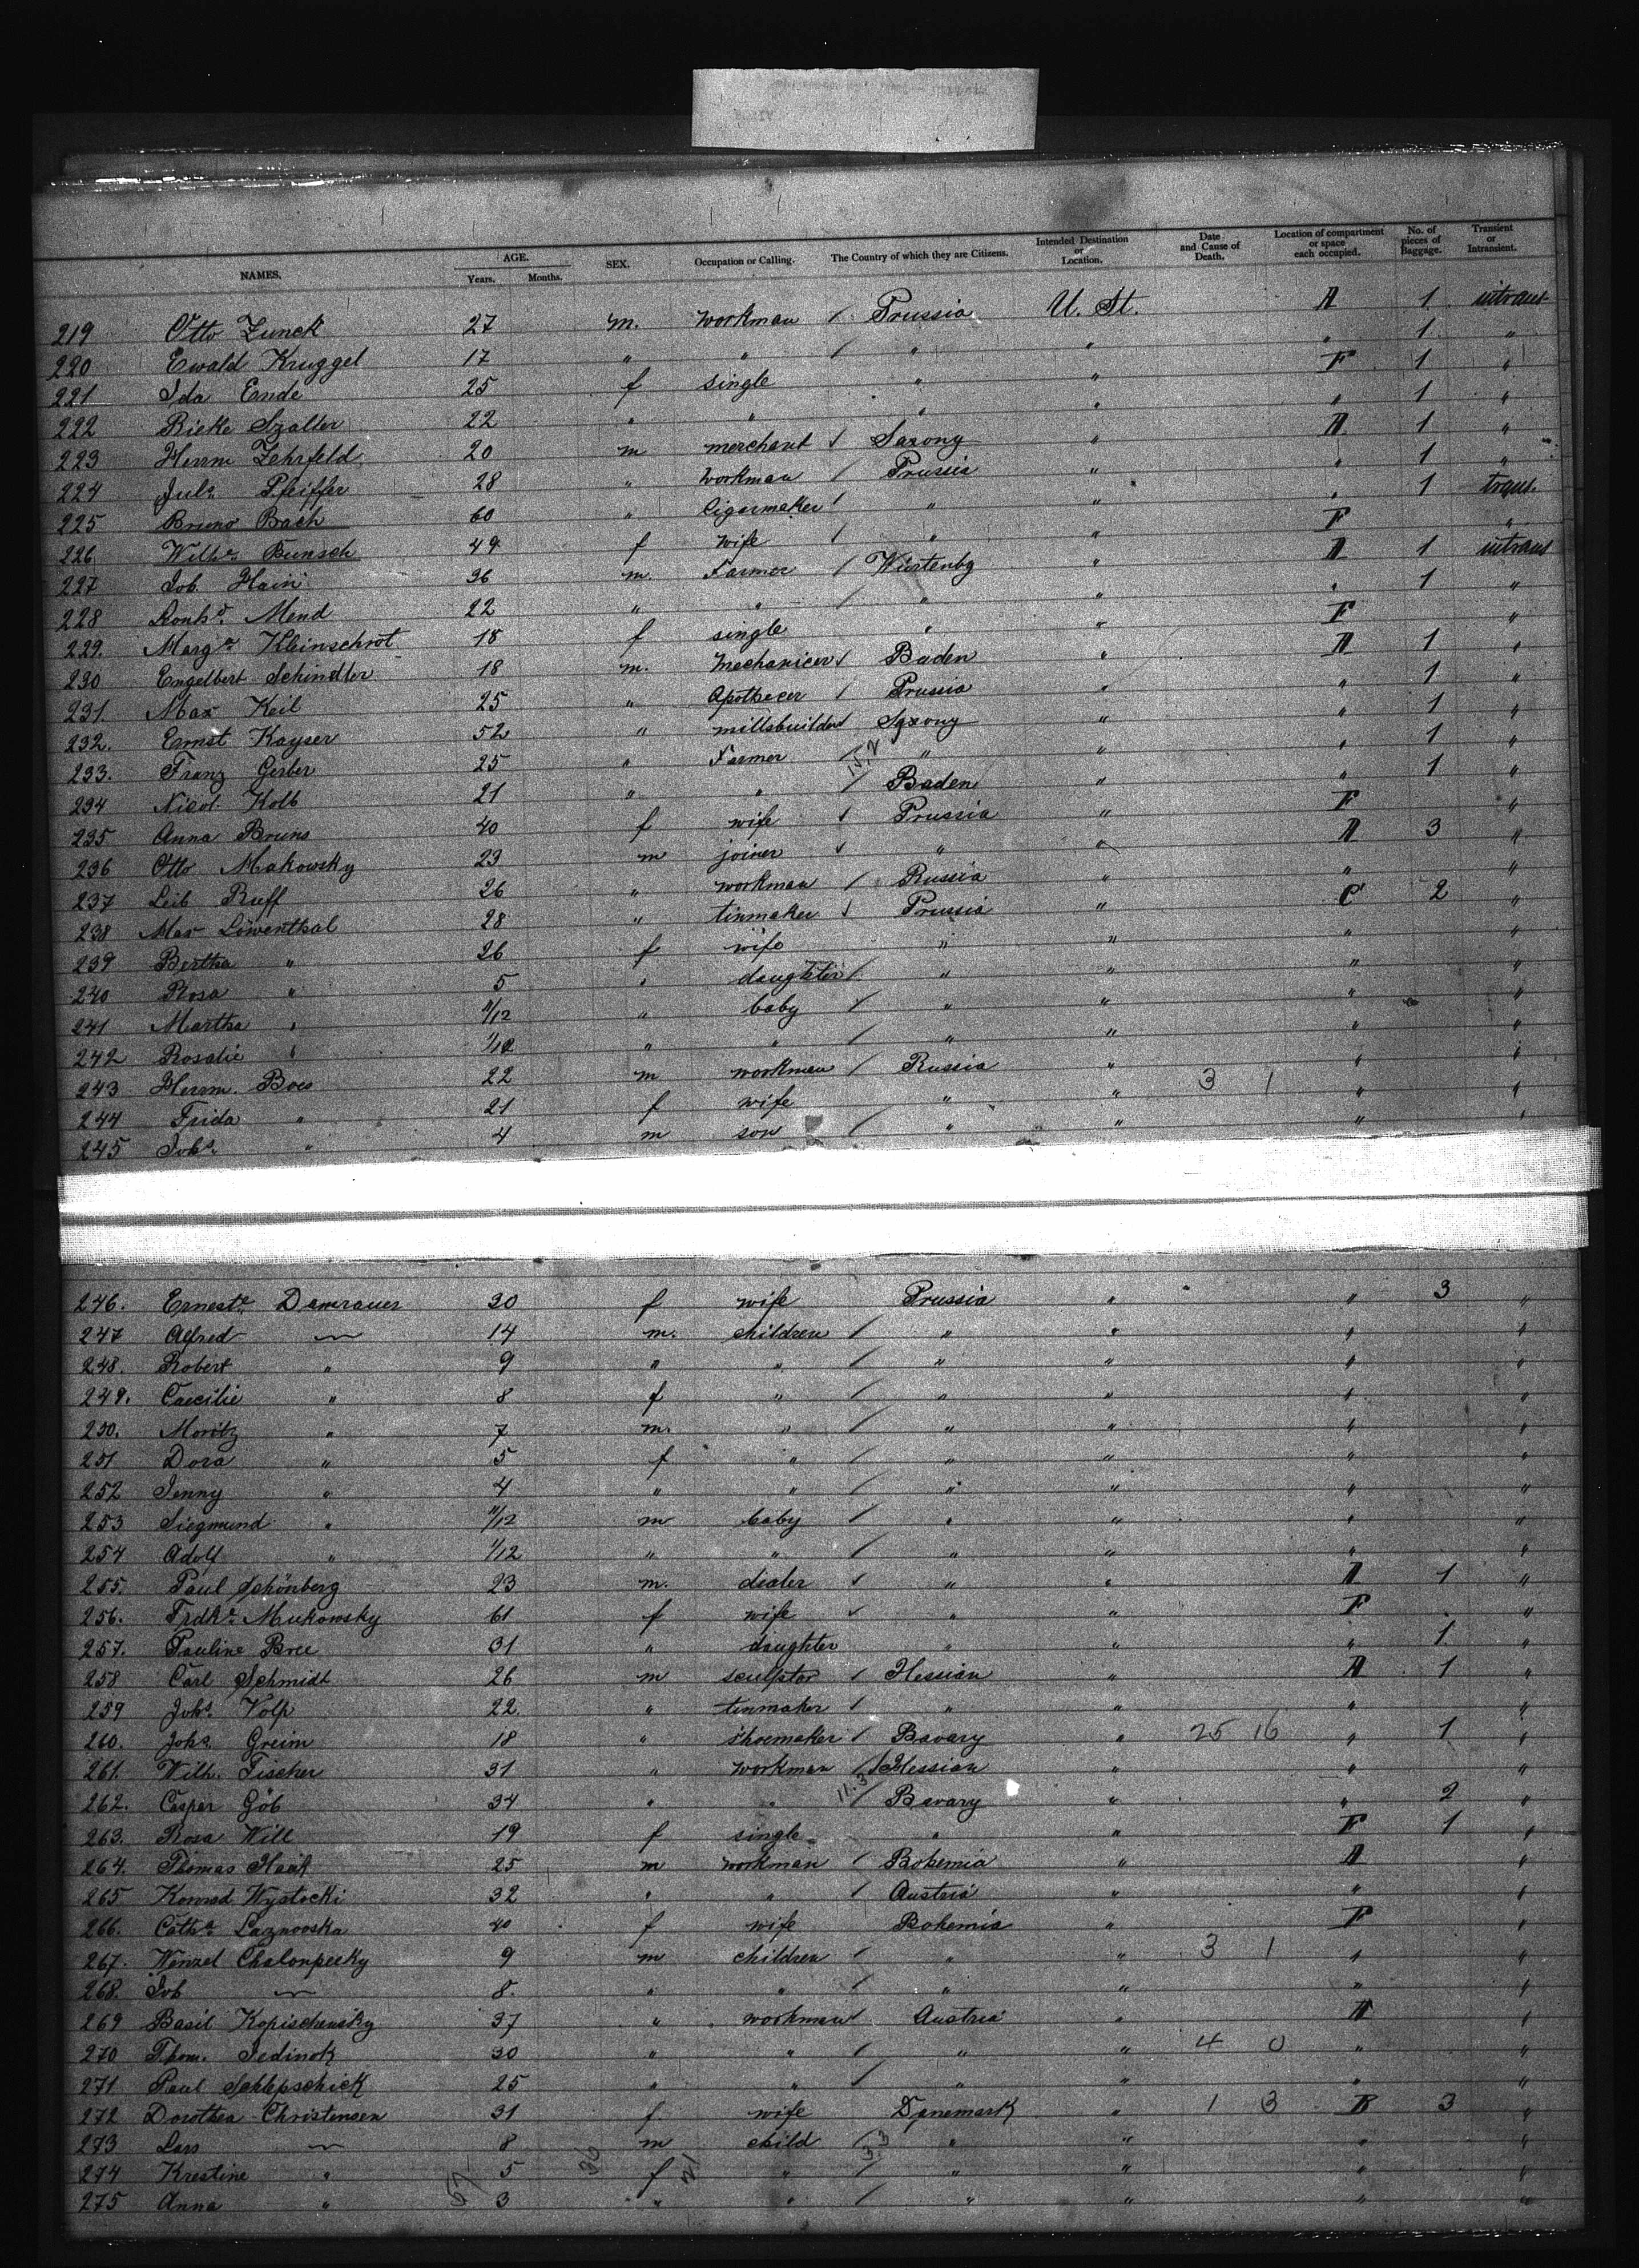 NAMES. AGE. Years. Months. SEX. Occupation or Calling. The Country of which they are Citizens. Intended Destination or Location. Date and Cause of Death. Location of compartment or space each occupied. No. of pieces of Baggage. Transient or Intransient.
219 Otto Zunck 27 m. workman / Prussia U. St. A 1 intrans
220 Ewald Kruggel 17 " " / " " " 1 "
221 Ida Ende 25 f single " " F 1 "
222 Rieke Szaller 22 " " " " " 1 "
223 Herrm Zehrfeld 20 m merchant √ Saxony " A 1 "
224 Juls Pfeiffer 28 " workman / Prussia " " 1 "
225 Bruno Bach 60 " Cigarmaker / " " " 1 trans.
226 Wilhe Bunsch 49 f wife / " " F "
227 Joh. Hain 36 m. Farmer / Würtenbg " A 1 intrans
228 Leonhd Mend 22 " " / " " " 1 "
229. Marga Kleinschrot 18 f single " " F "
230 Engelbert Schindler 18 m. Mechanicer √ Baden " A 1 "
231. Max Keil 25 " Apothecer / Prussia " " 1 "
232. Ernst Kayser 52 " millsbuilder √ Saxony " " 1 "
233. Franz Gerber 25 " Farmer / " " " 1 "
234 Nicol. Kolb 21 " " / Baden " " 1 "
235 Anna Bruns 40 f wife √ Prussia " F "
236 Otto Makowsky 23 m joiner √ " " A 3 "
237 Leib Ruff 26 " workman / Russia " " "
238 Max Löwenthal 28 " tinmaker √ Prussia " C 2 "
239 Bertha " 26 f wife " " " "
240 Rosa " 5 " daughter / " " " "
241 Martha " 11/12 " baby / " " " "
242 Rosalie " 1/12 " " / " " " "
243 Herrm. Boes 22 m workman / Russia " " "
244 Frida " 21 f wife " " 3 1 " "
245 Johs " 4 m son / " " " "
246. Erneste Damrauer 30 f wife Prussia " " 3 "
247 Alfred " 14 m. children / " " " "
248. Robert " 9 " " / " " " "
249. Caecilie " 8 f " / " " " "
250. Moritz " 7 m. " / " " " "
251 Dora " 5 f " / " " " "
252 Jenny " 4 " " / " " " "
253 Siegmund " 11/12 m baby / " " " "
254 Adolf " 1/12 " " / " " " "
255. Paul Schönberg 23 m. dealer √ " " A 1 "
256. Frdke Mukowsky 61 f wife √ " " F "
257. Pauline Bree 31 " daughter " " " 1 "
258 Carl Schmidt 26 m sculptor / Hessian " A 1 "
259 Johs Volp 22. " tinmaker / " " " "
260. Johs Greim 18 " shoemaker / Bavary " 25 16 " 1 "
261. Wilh. Fischer 31 " workman / Hessian " " "
262. Caspar Göb 34 " " 11.3 / Bavary " " 2 "
263. Rosa Will 19 f single " " F 1 "
264. Thomas 25 m workman / Bohemia " A "
265 Konrad Wystocki 32 " " / Austria " " "
266. Catha Laznovska 40 f wife Bohemia " F "
267. Wenzel Chaloupecky 9 m children / " " 3 1 " "
268. Joh " 8. " " / " " " "
269 Basil Kopischansky 37 " workman √ Austria " A "
270 Thom. Jedinok 30 " " / " " 4 0 " "
271 Paul Schlepschick 25 " " / " " " "
272 Dorothea Christensen 31 f wife Danemark " 1 3 B 3 "
273 Lars " 8 m child / " " " "
274 Krestine " 5 f " / " " " "
275 Anna " 3 " " / " " " "